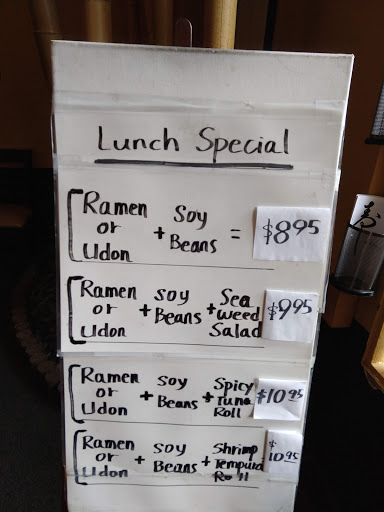 Lunch Special
Ramen or Udon + Soy Beans = $8.95
Ramen or Udon + Soy Beans + Sea weed Salad $9.95
Ramen or Udon + Soy Beans + Spicy Tuna Roll $10.95
Ramen or Udon + Soy Beans + Shrimp Tempura Roll $10.95